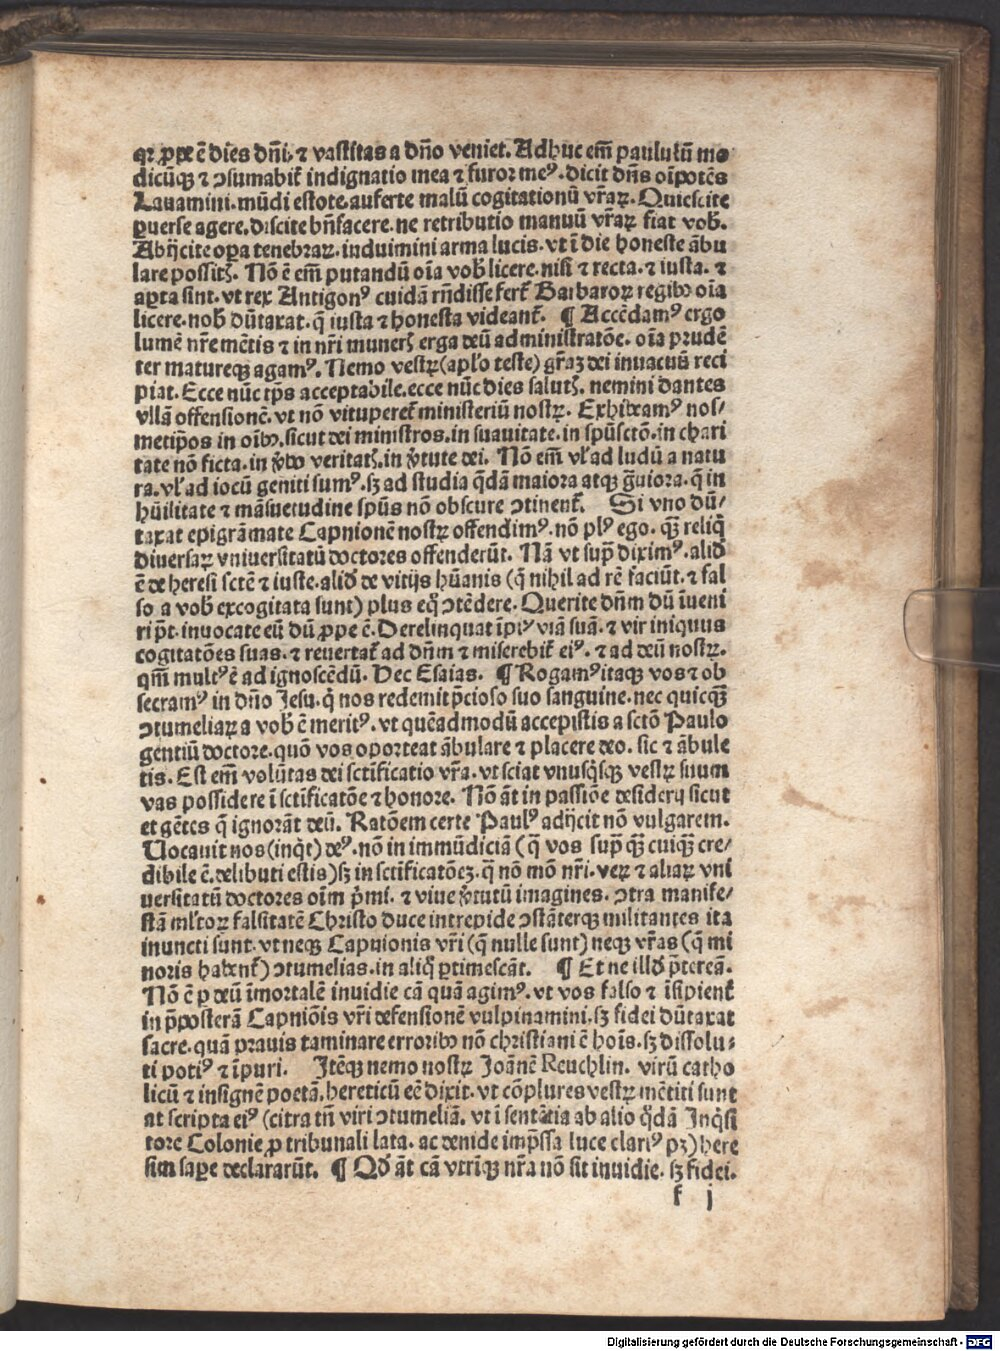 qꝛ ꝓpe ē dies dn̄i. ⁊ vastitas a dn̄o veniet. Adhuc em̄ paululū mo
dicūqꝫ ⁊ ↄsumabit̄ indignatio mea ⁊ furor meꝰ. dicit dn̄s oīpotēs
Lauamini. mūdi estote. auferte malū cogitationū vr̄aꝝ. Quiescite
ꝑuerse agere. discite bn̄facere. ne retributio manuū vr̄aꝝ fiat vob̄.
Abijcite oꝑa tenebraꝝ. induimini arma lucis. vt ī die honeste ābu
lare possitꝭ. Nō ē em̄ putandū oīa vob̄ licere. nisi ⁊ recta. ⁊ iusta. ⁊
aꝑta sint. vt rex Antigonꝰ cuidā rn̄disse fert̄ Barbaroꝝ regibꝰ oīa
licere. nob̄ dūtaxat. q̄ iusta ⁊ honesta videant̄. ¶ Accēdamꝰ ergo
lumē nr̄e mētis ⁊ in nr̄i munerꝭ erga deū administratōe. oīa prudē
ter matureqꝫ agamꝰ. Nemo vestrꝝ (apl̄o teste) gr̄aꝫ dei inuacuū reci
piat. Ecce nūc tp̄s acceptabile. ecce nūc dies salutꝭ. nemini dantes
vllā offensionē. vt nō vituperet̄ ministeriū nostrꝝ. Exhibeamꝰ nos/
metip̄os in oībꝰ. sicut dei ministros. in suauitate. in spūsctō. in chari
tate nō ficta. in v̓bo veritatꝭ. in v̓tute dei. Nō em̄ vl̓ ad ludū a natu
ra. vl̓ ad iocū geniti sumꝰ. sꝫ ad studia q̄dā maiora atqꝫ g̓uiora. q̄ in
hūilitate ⁊ māsuetudine spūs nō obscure ↄtinent̄. Si vno dū/
taxat epigrāmate Capnionē nostrꝝ offendimꝰ. nō plꝰ ego. qꝫ̄ reliq̄
diuersaꝝ vniuersitatū doctores offenderūt. Nā vt sup̄ diximꝰ. aliđ
ē de heresi sctē ⁊ iuste. aliđ de vitijs hūanis (q̄ nihil ad rē faciūt. ⁊ fal
so a vob̄ excogitata sunt) plus eq̊ ↄtēdere. Querite dn̄m dū īueni
ri p̄t. inuocate eū dū ꝓpe ē. Derelinquat īpiꝰ viā suā. ⁊ vir iniquus
cogitatōes suas. ⁊ reuertat̄ ad dn̄m ⁊ miserebit̄ eiꝰ. ⁊ ad deū nostrꝝ.
qm̄ multꝰ ē ad ignoscēdū. Hec Esaias. ¶ Rogamꝰ itaqꝫ vos ⁊ ob
secramꝰ in dn̄o Jesu. q̓ nos redemit p̄cioso suo sanguine. nec quicqꝫ̄
ↄtumeliaꝝ a vob̄ ē meritꝰ. vt quēadmodū accepistis a sctō Paulo
gentiū doctore. quō vos oporteat ābulare ⁊ placere deo. sic ⁊ ābule
tis. Est em̄ volūtas dei sctīficatio vr̄a. vt sciat vnusq̓sqꝫ vestrꝝ suum
vas possidere ī sctīficatōe ⁊ honore. Nō āt in passiōe desiderij sicut
et gētes q̄ ignorāt deū. Ratōem certe Paulꝰ adijcit nō vulgarem.
Uocauit nos (inq̓t) deꝰ. nō in immūdiciā (q̄ vos sup̄ qꝫ̄ cuiqꝫ cre/
dibile ē. delibuti estis) sꝫ in sctīficatōeꝫ. q̄ nō mō nr̄i. veꝝ ⁊ aliaꝝ vni
uersitatū doctores oīm p̓mi. ⁊ viue v̓tutū imagines. ↄtra manife/
stā ml̓toꝝ falsitatē Christo duce intrepide ↄstāterqꝫ militantes ita
inuncti sunt. vt neqꝫ Capnionis vr̄i (q̄ nulle sunt) neqꝫ vr̄as (q̄ mi
noris habent̄) ↄtumelias. in aliq̊ ꝑtimescāt. ¶ Et ne illđ p̄tereā.
Nō ē ꝑ deū īmortalē inuidie cā quā agimꝰ. vt vos falso ⁊ īsipient̓
in p̄posterā Capniōis vr̄i defensionē vulpinamini. sꝫ fidei dūtaxat
sacre. quā prauis taminare erroribꝰ nō christiani ē hoīs. sꝫ dissolu-
ti potiꝰ ⁊ īpuri. Jtēqꝫ nemo nostrꝝ Joānē Reuchlin. virū catho
licū ⁊ insignē poetā. hereticū eē dixit. vt cōplures vestrꝝ mētiti sunt
at scripta eiꝰ (citra tn̄ viri ↄtumeliā. vt ī sentētia ab alio q̊dā Jnq̓si
tore Colonie ꝓ tribunali lata. ac deinde imp̄ssa luce clariꝰ pꝫ) here
sim saꝑe declararūt. ¶ Qđ āt cā vtrīqꝫ nr̄a nō sit inuidie. sꝫ fidei.
f j
Digitalisierung gefördert durch die Deutsche Forschungsgemeinschaft - DFG